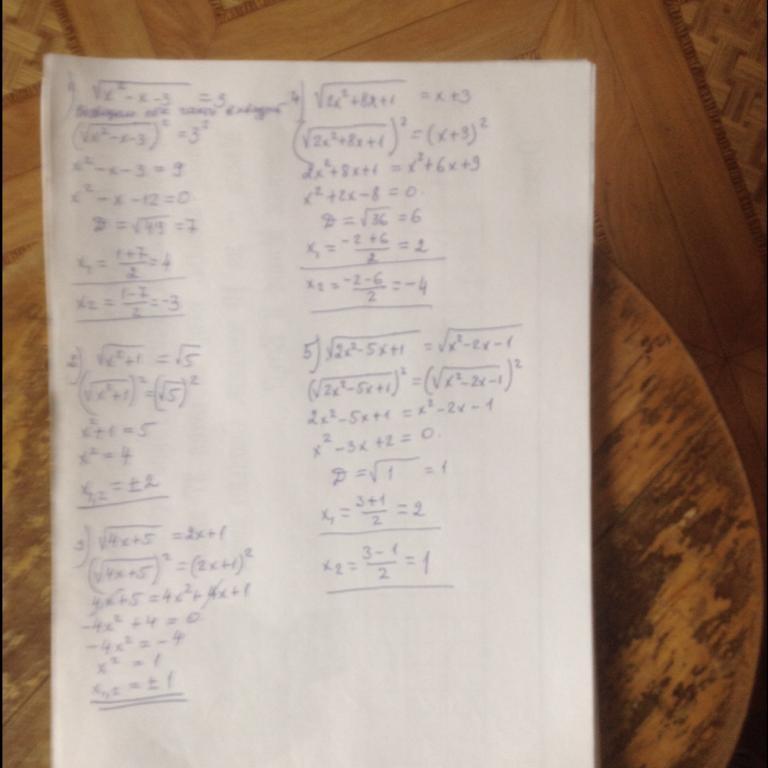 1) √(x²-x-3) = 3
Возводим обе части в квадрат
(√(x²-x-3))² = 3²
x²-x-3 = 9
x²-x-12=0
D = √49 = 7
x₁ = (1+7)/2 = 4
x₂ = (1-7)/2 = -3
2) √(x²+1) = √5
(√(x²+1))² = (√5)²
x²+1 = 5
x² = 4
x₁,₂ = ±2
3) √(4x+5) = 2x+1
(√(4x+5))² = (2x+1)²
4x+5 = 4x²+4x+1
-4x²+4 = 0
-4x² = -4
x² = 1
x₁,₂ = ±1
4) √(2x²+8x+1) = x+3
(√(2x²+8x+1))² = (x+3)²
2x²+8x+1 = x²+6x+9
x²+2x-8 = 0.
D = √36 = 6
x₁ = (-2+6)/2 = 2
x₂ = (-2-6)/2 = -4
5) √(2x²-5x+1) = √(x²-2x-1)
(√(2x²-5x+1))² = (√(x²-2x-1))²
2x²-5x+1 = x²-2x-1
x²-3x+2 = 0.
D = √1 = 1
x₁ = (3+1)/2 = 2
x₂ = (3-1)/2 = 1